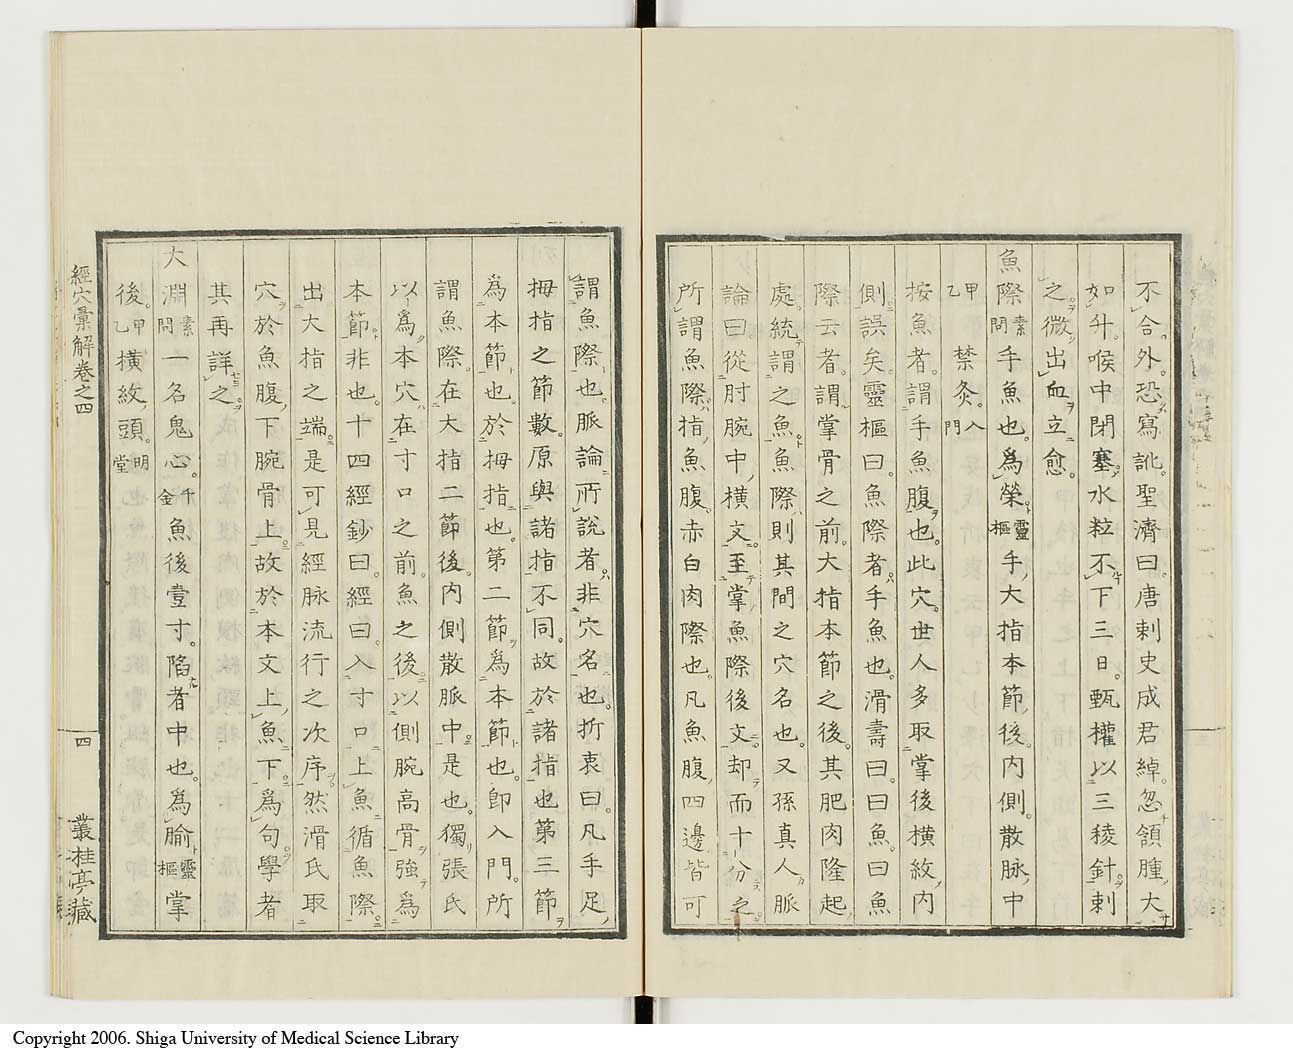 不合外恐寫訛聖濟曰唐刺史成君綽忽頷腫大
如升喉中閉塞水粒不下三日甄權以三稜針刺
之微出血立愈
魚際素問手魚也爲滎靈樞手大指本節後內側散脉中
甲乙禁灸入門
按魚者謂手魚腹也此穴世人多取掌後橫紋內
側誤矣靈樞曰魚際者手魚也滑壽曰曰魚曰魚
際云者謂掌骨之前大指本節之後其肥肉隆起
處統謂之魚魚際則其間之穴名也又孫真人脈
論曰從肘腕中橫文至掌魚際後文却而十分之
所謂魚際指魚腹赤白肉際也凡魚腹四邊皆可
謂魚際也脈論所說者非穴名也折衷曰凡手足
拇指之節數原與諸指不同故於諸指也第三節
爲本節也於拇指也第二節爲本節也卽入門所
謂魚際在大指二節後內側散脈中是也獨張氏
以爲本穴在寸口之前魚之後以側腕高骨強爲
本節非也十四經鈔曰經曰入寸口上魚循魚際
出大指之端是可見經脉流行之次序然滑氏取
穴於魚腹下腕骨上故於本文上魚下爲句學者
其再詳之
大淵素問一名鬼心千金魚後壹寸陷者中也爲腧靈樞掌
後甲乙橫紋頭明堂
經穴彙解卷之四
四
叢桂亭藏
Copyright 2006. Shiga University of Medical Science Library